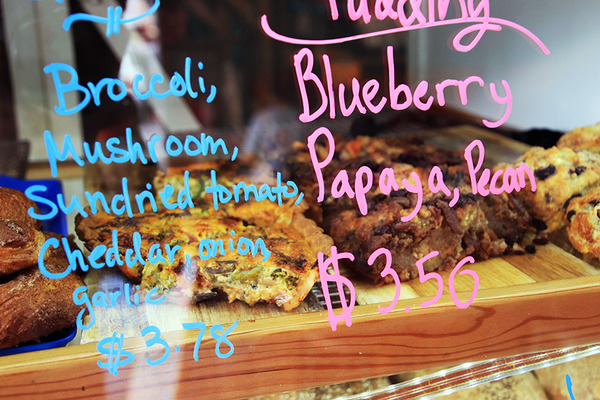 Pudding
Blueberry
Papaya, Pecan
$3.56
Broccoli,
Mushroom,
Sundried tomato,
Cheddar, onion,
garlic
$3.78